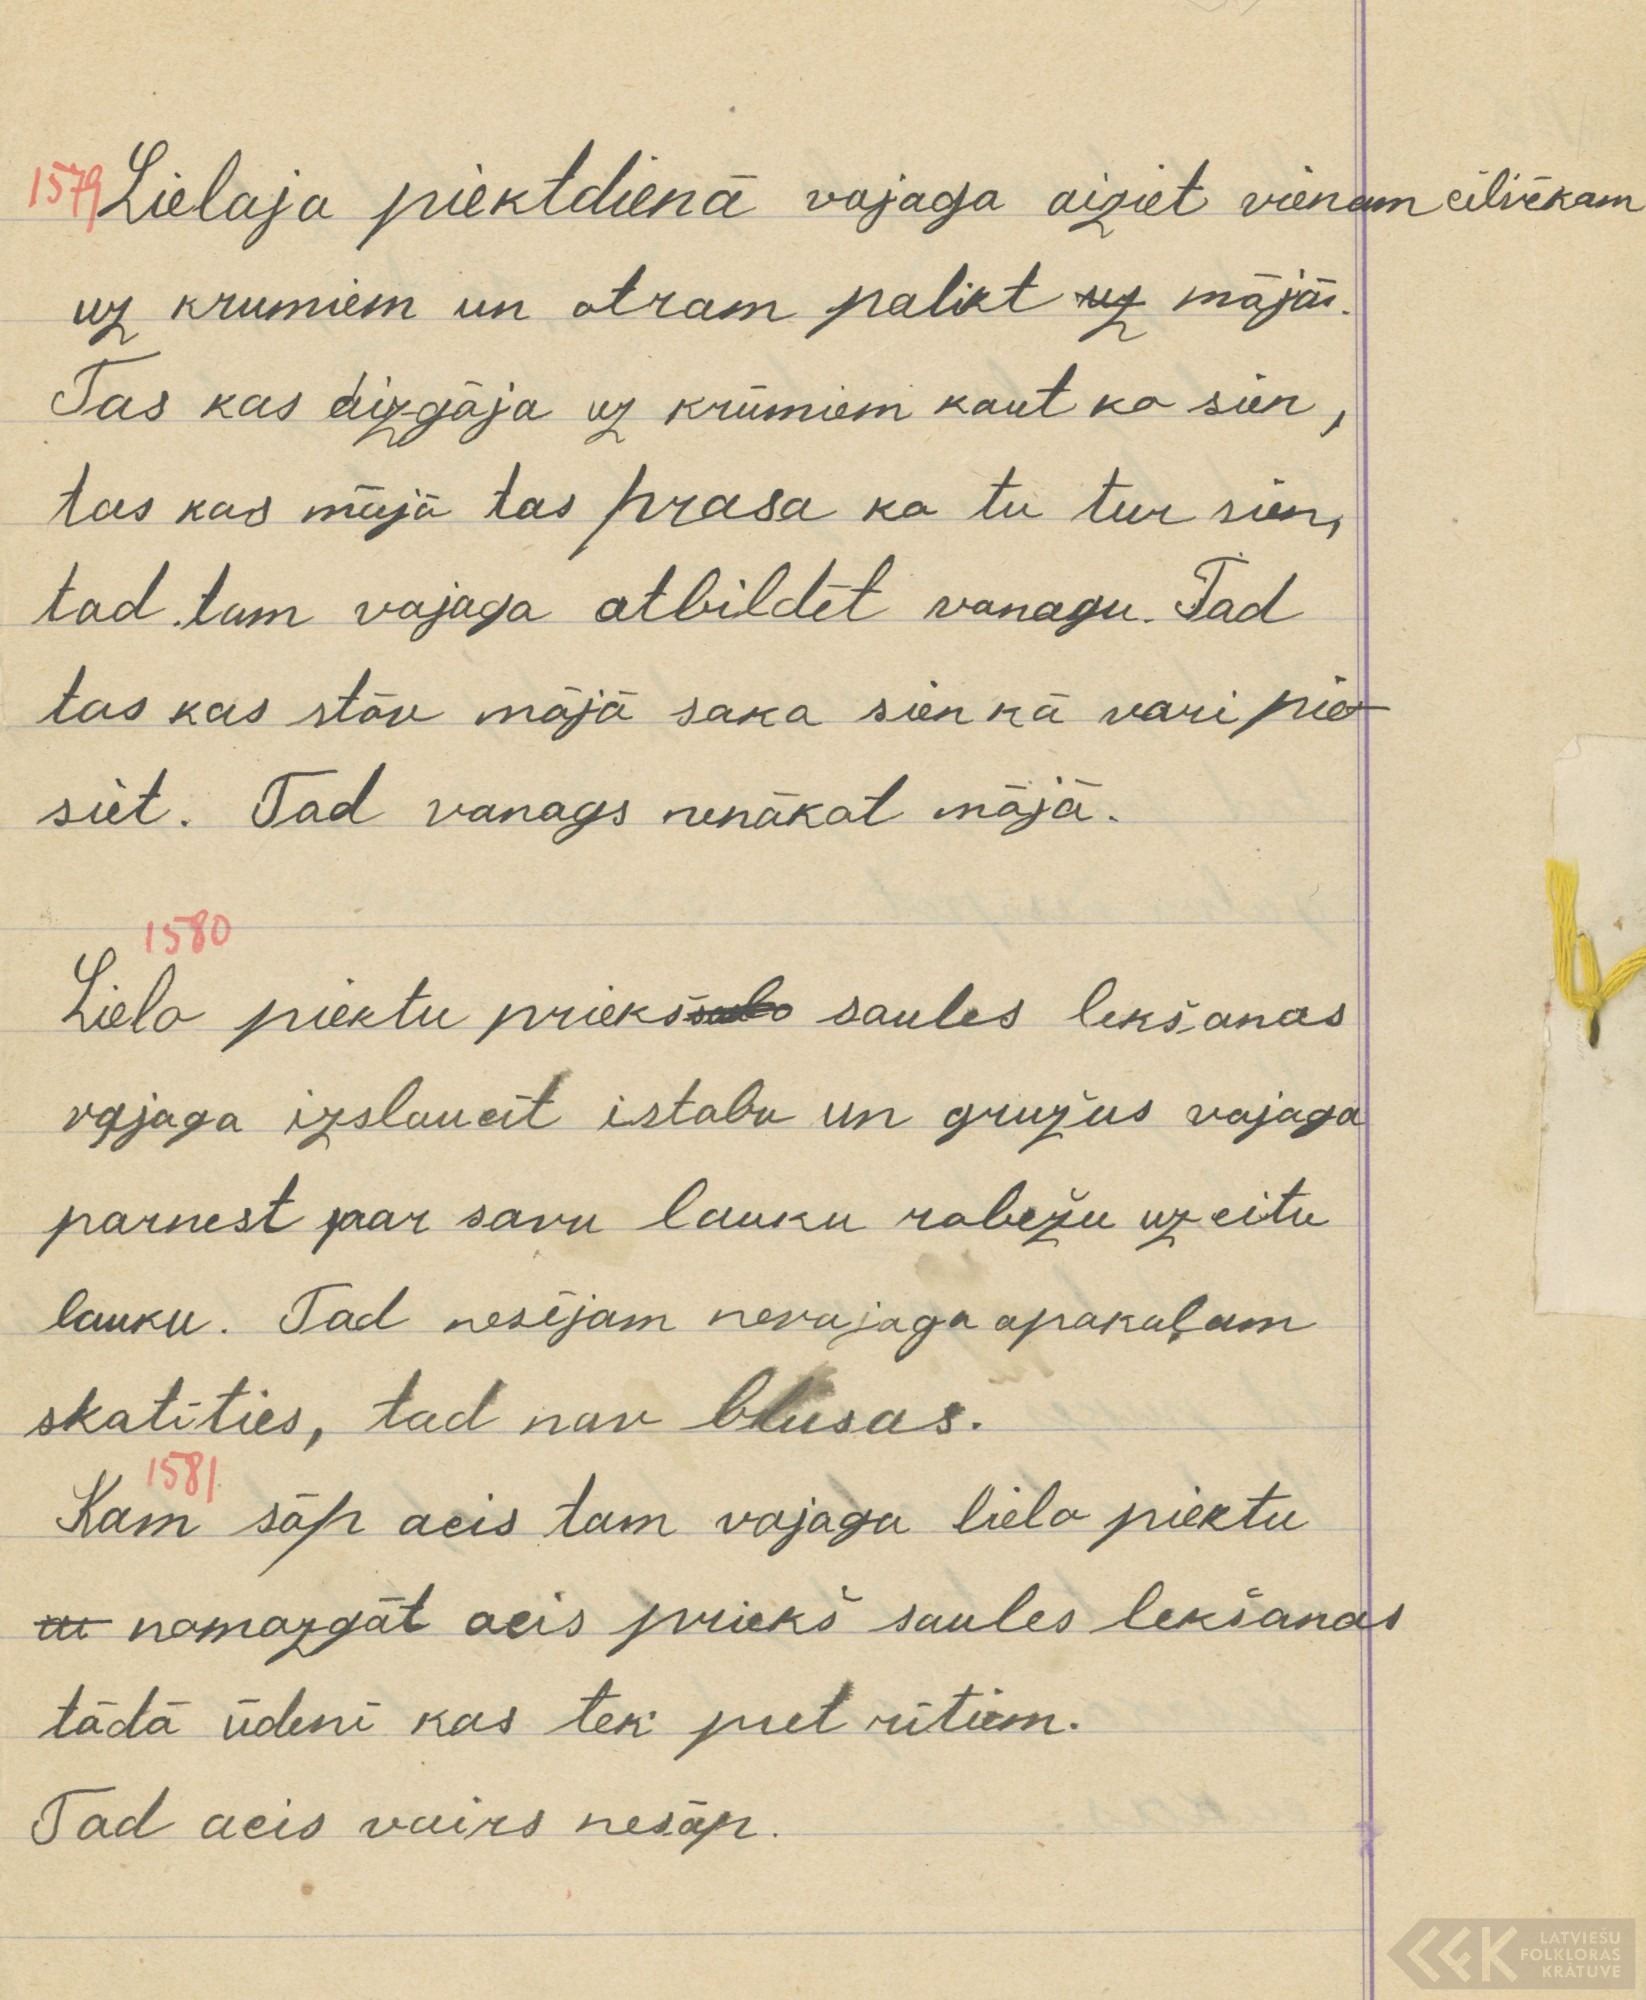 1579 Lielaja piektdienā vajaga aiziet vienam cilvēkam
uz krumiem un otram palikt uz mājās.
Tas kas aizgāja uz krūmiem kaut ko sien,
tas kas mājā tas prasa ko tu tur sien,
tad tam vajaga atbildēt vanagu. Tad
tas kas stāv mājā saka sien kā vari pie-
siet. Tad vanags nenākot mājā.
1580
Lielo piektu priekš saules lekšanas
vajaga izslaucīt istabu un gružus vajaga
parnest par savu lauku robežu uz citu
lauku. Tad nesējam nevajaga apakaļam
skatīties, tad nav blusas.
1581.
Kam sāp acis tam vajaga lielo piektu
nomazgāt acis priekš saules lekšanas
tādā ūdenī kas tek pret rītiem.
Tad acis vairs nesāp.
LATVIEŠU
FOLKLORAS
KRĀTUVE